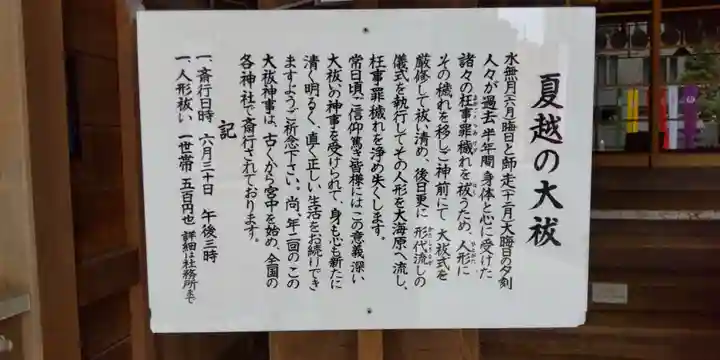 夏越の大祓
水無月(六月)晦日と師走(十二月)大晦日の夕刻
人々が過去半年間身体と心に受けた
諸々の枉事罪穢れを祓うため、人形に
その穢れを移しご神前にて大祓式を
厳修して祓い清め、後日更に形代流しの
儀式を執行してその人形を大海原へ流し、
枉事罪穢れを浄め失くします。
常日頃ご信仰篤き皆様にはこの意義深い
大祓いの神事を受けられて、身も心も新たに
清く明るく、直く正しい生活をお続けでき
ますようご祈念下さい。尚、年二回のこの
大祓神事は、古くから宮中を始め、全国の
各神社で斎行されております。
記
一、斎行日時 六月三十日 午後三時
一、人形祓い 一世帯 五百円也 詳細は社務所まで